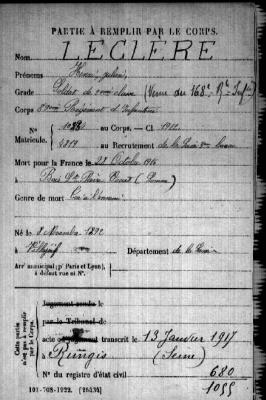 PARTIE À REMPLIR PAR LE CORPS.
Nom LECLÈRE
Prénoms Henri, Julien
Grade Soldat de 2ème classe (Venu du 168e Rt Inf)
Corps Régiment d'Infanterie
N° au Corps. — Cl 1912
Matricule. au Recrutement de la Seine
Mort pour la France le 28 Octobre 1916
à Bois St Pierre (Somme)
Genre de mort Tué à l'ennemi
Né le 8 Novembre 1892
Villejuif Département de la Seine
Arrt municipal (pr Paris et Lyon),
à défaut rue et N°.
Cette partie
n'est pas à remplir
par le Corps.
Jugement rendu le
par le Tribunal de
acte ou jugement transcrit le 13 Janvier 1917
à Rungis (Seine)
N° du registre d'état civil 680
1055
101-708-1922. [26434]